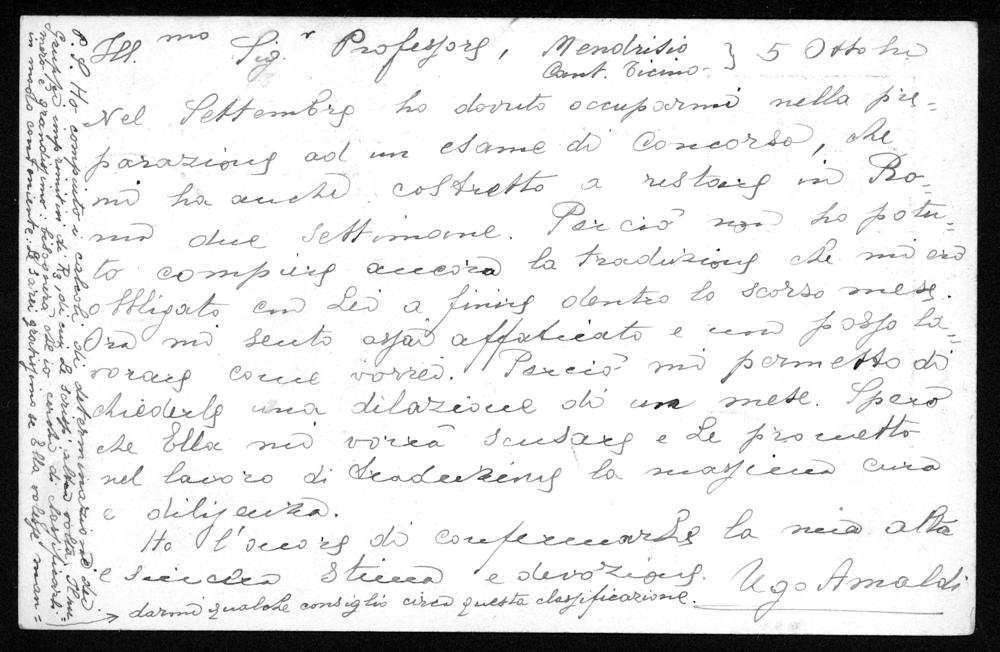 Ill.mo Sig.r Professore, Mendrisio } 5 Ottobre
Cant. Ticino -
Nel Settembre ho dovuto occuparmi nella pre=
parazione ad un esame di concorso, che
mi ha anche costretto a restare in Ro=
ma due settimane. Perciò non ho potu=
to compiere ancora la traduzione che mi ero
obbligato con Lei a finire dentro lo scorso mese.
Ora mi sento assai affaticato e non posso la=
vorare come vorrei. Perciò mi permetto di
chiederle una dilazione di un mese. Spero
che Ella mi vorrà scusare e Le prometto
nel lavoro di traduzione la massima cura
e diligenza.
Ho l'onore di confermarLe la mia alta
e sincera stima e devozione. Ugo Amaldi
P.S. Ho compiuto i calcoli di determinazione dei
Gruppi imprimitivi di di cui Le scrissi altra volta. Il nu=
mero è grandissimo: bisognerà che io cerchi di classificarli
in modo conveniente. Le sarei gratissimo se Ella volesse man=
darmi qualche consiglio circa questa classificazione.